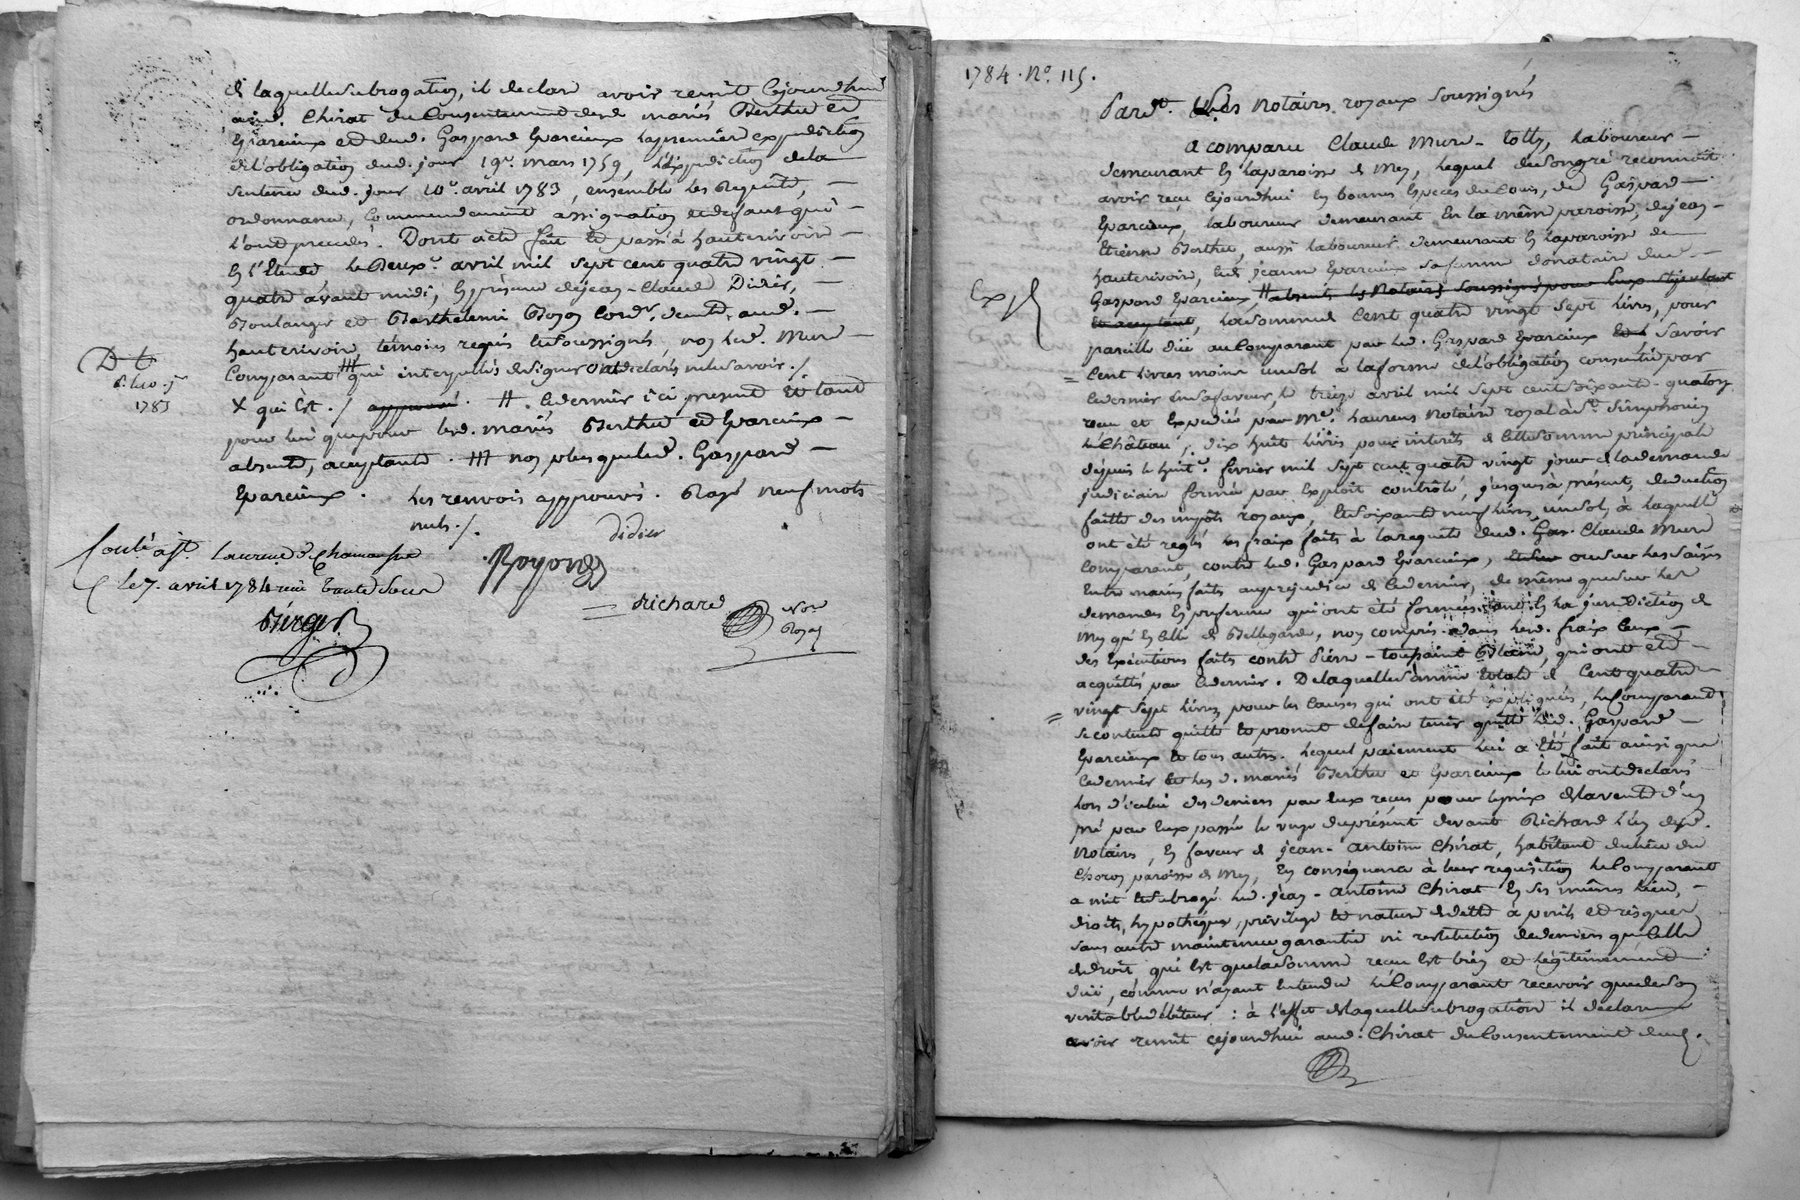 de laquelle subrogation, il declare avoir remit cejourdhui
aud. Chirat du Consentement desd. mariés Berthu et
Eparcieux et dud. Gaspard Eparcieux la premiere expédiction
de l'obligation dud. jour 19e. mars 1759, l'expédiction de la
sentence dud. jour 10e. avril 1783, ensemble les Requête,
ordonnance, Commendement assignation et deffaut qui
l'ont précedés. Dont acte fait et passé à hauterivoire
En l'Etude le Deuxe. avril mil sept cent quatre vingt
quatre avant midi, En présence de jean-Claude Didier,
Boulanger et Barthelemi Boyon Cordr. demts. aud.
hauterivoire témoins requis et soussignés, non led. Mure
Comparant ## qui interpellés de signer ont déclarés ne le savoir ./
Dt
1783
X qui Est ./ approuvé. # . Ce dernier ici présent et tant
pour lui que pour lesd. mariés Berthu et Eparcieux
absents, acceptante . ## non plus que led. Gaspard
Eparcieux. Les renvois approuvés. Rayé neuf mots
nuls ./.
didier
Boyon
Richard
Nore.
Royal
Conlé. à St. Laurent de Chamousset
Le 7. avril 1784 reçu trente sous
Berger
1784. No. 115.
Pardt. Les Notaires royaux soussignés
a comparu Claude Mure-tolly, Laboureur
demeurant En la paroisse de Mey, lequel de son gré reconnoit
avoir reçu cejourdhui En bonnes Especes de Cours, de Gaspard
Eparcieux, laboureur demeurant En la même paroisse, de jean
Etienne Berthu, aussi laboureur demeurant En la paroisse de
hauterivoire, et de jeanne Eparcieux sa femme donataire dud.
Exp
Gaspard Eparcieux, # absents les Notaires soussignés pour Eux stipulant
et acceptant, la somme de Cent quatre vingt sept livres, pour
pareille düe au Comparant par led. Gaspard Eparcieux savoir
Cent livres moins un sol à la forme de l'obligation consentie par
ce dernier en sa faveur, le treize avril mil sept cent soixante-quatorze
reçu et Expédiée par Me. Laurens Notaire royal à St. Simphorien
le Château, dix huit livres pour intérêts de cette somme principale
depuis le huite. fevrier mil sept cent quatre vingt jour de la demande
judiciaire formée par Exploit contrôlé, jusques à présent, deduction
faitte des impôts royaux, et soixante neuf livres, un sol, à laquelle
ont été reglés les fraix faits à la requete dud. Claude Mure
Comparant, contre led. Gaspard Eparcieux, ou sur les saisies
Entre mains faits au préjudice de ce dernier, de même que sur les
demandes En préférence qui ont été formées tant En la jurisdiction de
Mey qu'En celle de Bellegarde, non compris dans lesd. fraix Ceux
des Exécutions faits contre Pierre-toussaint Blein, qui ont été
acquittés par ce dernier. De laquelle somme totale de Cent quatre
vingt sept livres pour les causes qui ont été expliquées, le Comparant
se contente quitte et promet de faire tenir quitte led. Gaspard
Eparcieux et tous autres. Lequel paiement lui a Eté fait ainsi que
ce dernier et les d. mariés Berthu et Eparcieux le lui ont déclarés
lors d'icelui des deniers par Eux reçus pour le prix de la vente d'un
pré par Eux passée le vue du présent devant Richard l'un desd.
Notaires, En faveur de jean-antoine Chirat, habitant du lieu du
Choron paroisse de Mey, En conséquence à leur requisition le Comparant
a mit et subrogé led. jean-antoine Chirat En ses mêmes lieu,
droits, hypothéque, privilege et nature de dette à perils et risques
sans autre maintenue garantie ni restitution de deniers que celle
de droit, qui Est que la somme reçue Est bien et légitimement
düe, comme n'ayant Entendu le Comparant recevoir que de son
veritable débiteur : à l'effet de laquelle subrogation il déclare
avoir remit cejourdhui aud. Chirat du Consentement desd.